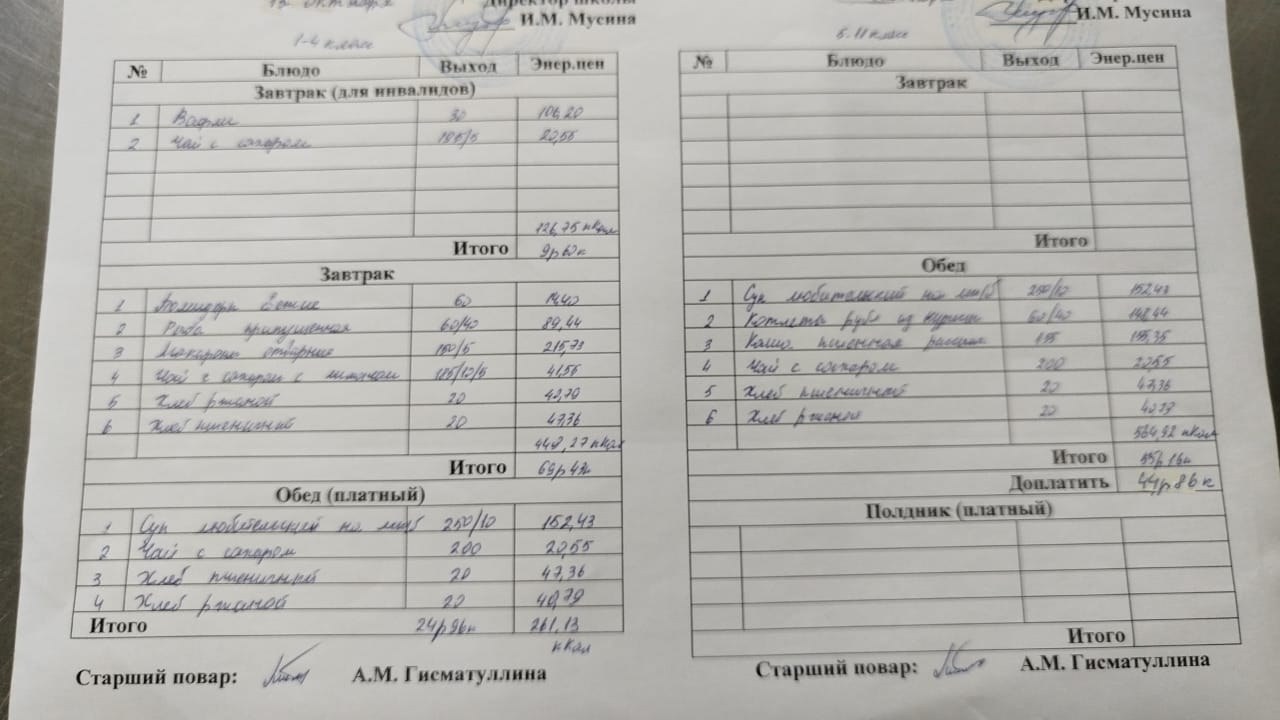 Директор школы
И.М. Мусина
1-4 класс
№ Блюдо Выход Энер.цен
Завтрак (для инвалидов)
1 Вафли 30 106,20
2 Чай с сахаром 185/5 20,55
126,75 кКал
Итого 9р60к
Завтрак
1 Помидоры свежие 60 14,40
2 Рыба припущенная 60/40 89,44
3 Макароны отварные 150/5 215,73
4 Чай с сахаром с лимоном 185/10/5 41,55
5 Хлеб ржаной 20 40,79
6 Хлеб пшеничный 20 47,36
кКал
Итого 69р43к
Обед (платный)
1 Суп любительский на м/б 250/10 152,43
2 Чай с сахаром 200 20,55
3 Хлеб пшеничный 20 47,36
4 Хлеб ржаной 20 40,79
Итого 24р96к 261,13
кКал
Старший повар: А.М. Гисматуллина
И.М. Мусина
5-11 класс
№ Блюдо Выход Энер.цен
Завтрак
Итого
Обед
1 Суп любительский на м/б 250/10 152,43
2 Котлеты руб из курицы 60/40 148,44
3 Каша пшенная 155 155,35
4 Чай с сахаром 200 20,55
5 Хлеб пшеничный 20 47,36
6 Хлеб ржаной 20 40,79
564,92 кКал
Итого
Доплатить 44р86к
Полдник (платный)
Итого
Старший повар: А.М. Гисматуллина